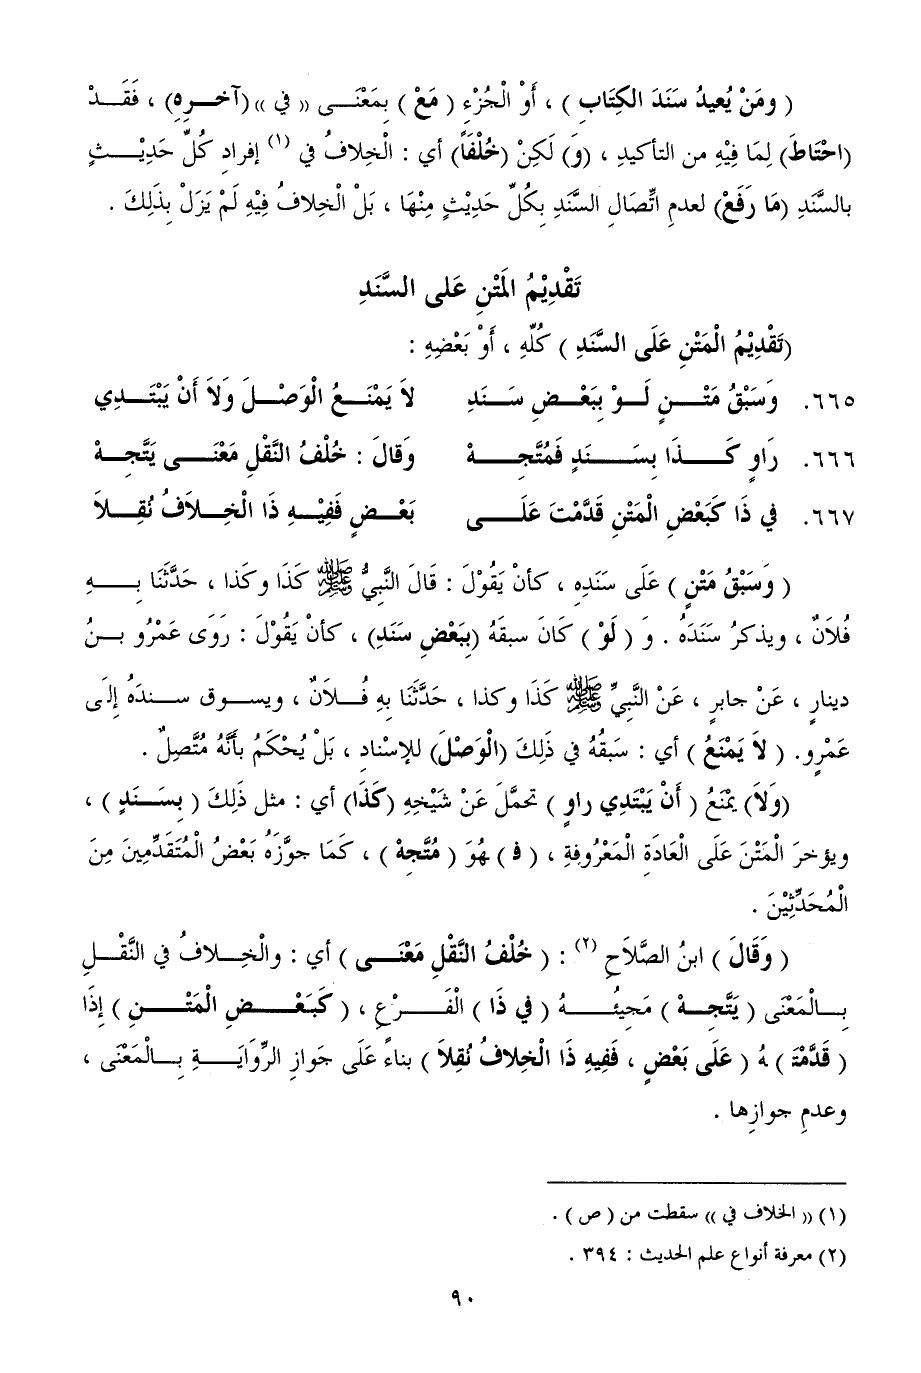 ( ومَنْ يُعيدُ سَنَدَ الكِتَابِ ) ، أَوْ الْجُزْءِ ( مَعْ ) بِمَعْنَى « في » (آخِرِه) ، فَقَدْ
(احْتَاطَ) لِمَا فِيْهِ من التأكيدِ ، (وَ) لَكِنْ (خُلْفَاً) أي : الْخِلافُ في (١) إفرادِ كُلِّ حَدِيْثٍ
بالسَّنَدِ (مَا رَفَعْ) لعدمِ اتِّصَالِ السَّنَدِ بكُلِّ حَدِيْثٍ مِنْهَا ، بَلْ الْخِلافُ فِيْهِ لَمْ يَزَلْ بِذَلِكَ .
تَقْدِيْمُ المَتْنِ عَلى السَّنَدِ
(تَقْدِيْمُ الْمَتْنِ عَلَى السَّنَدِ ) كُلِّهِ ، أَوْ بَعْضِهِ :
٦٦٥. وَسَبْقُ مَتْنٍ لَوْ بِبَعْضِ سَنَدِ لاَ يَمْنَعُ الْوَصْلَ وَلاَ أَنْ يَبْتَدِي
٦٦٦. رَاوٍ كَذَا بِسَنَدٍ فَمُتَّجِهْ وَقالَ : خُلْفُ النَّقْلِ مَعْنَى يَتَّجِهْ
٦٦٧. في ذَا كَبَعْضِ الْمَتْنِ قَدَّمْتَ عَلَى بَعْضٍ فَفِيْهِ ذَا الْخِلاَفُ نُقِلاَ
( وَسَبْقُ مَتْنٍ ) عَلَى سَنَدِهِ ، كأنْ يَقُوْلَ : قَالَ النَّبِيُّ ﷺ كَذَا وكَذا ، حَدَّثَنَا بِهِ
فُلاَنٌ ، ويذكرُ سَنَدَهُ . وَ ( لَوْ ) كَانَ سبقَهُ (بِبَعْضِ سَنَدِ) ، كأنْ يَقُوْلَ : رَوَى عَمْرُو بنُ
دينارٍ ، عَنْ جابرٍ ، عَنْ النَّبِيِّ ﷺ كَذَا وكذا ، حَدَّثَنَا بِهِ فُلاَنٌ ، ويسوق سندَهُ إِلَى
عَمْرٍو. ( لاَ يَمْنَعُ ) أي : سَبقُهُ في ذَلِكَ (الْوَصْلَ) للإسْنادِ ، بَلْ يُحْكَمُ بأنَّهُ مُتَّصِلٌ .
(وَلاَ) يمْنَعُ ( أَنْ يَبْتَدِي راوٍ ) تحمَّلَ عَنْ شَيْخِهِ (كَذَا) أي : مثل ذَلِكَ ( بِسَنَدٍ ) ،
ويؤخرَ الْمَتْنَ عَلَى الْعَادَةِ الْمَعْرُوفَةِ ، ( فـ ) هُوَ ( مُتَّجِهْ ) ، كَمَا جوَّزَهُ بَعْضُ الْمُتَقَدِّمِينَ مِنَ
الْمُحَدِّثِيْنَ .
( وَقَالَ ) ابنُ الصَّلاَحِ (٢) : ( خُلْفُ النَّقْلِ مَعْنَى ) أي : والْخِلافُ في النَّقْلِ
بالْمَعْنَى ( يَتَّجِهْ ) مَجيئُهُ ( في ذَا ) الْفَرْعِ ، ( كَبَعْضِ الْمَتْنِ ) إذَا
( قَدَّمْتَ ) هُ ( عَلَى بَعْضٍ ، فَفِيهِ ذَا الْخِلاَفُ نُقِلاَ ) بناءً عَلَى جَوازِ الرِّوَايَةِ بالْمَعْنَى ،
وعدمِ جوازِها .
(١) « الخلاف في » سقطت من ( ص ) .
(٢) معرفة أنواع علم الحديث : ٣٩٤ .
٩٠